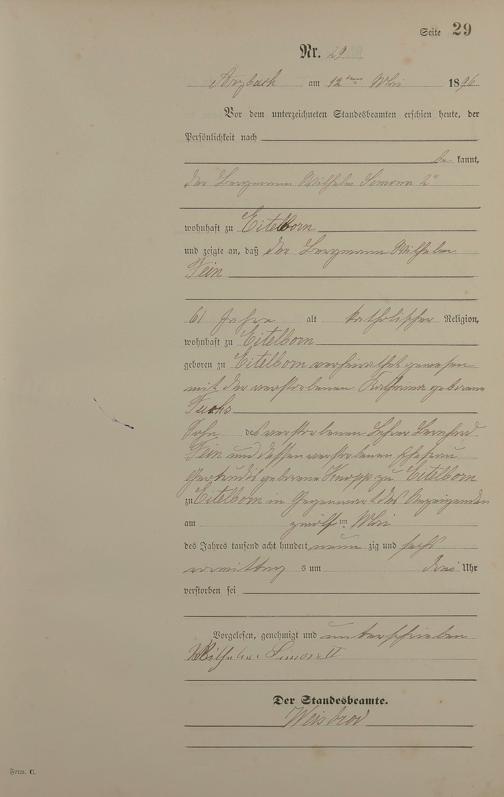 Seite 29
Nr. 29
Arzbach am 12ten Mai 1896
Vor dem unterzeichneten Standesbeamten erschien heute, der
Persönlichkeit nach
be kannt,
der Bergmann Wilhelm Simon 2r
wohnhaft zu Eitelborn
und zeigte an, daß der Bergmann Wilhelm
Fein
61 Jahre alt katholischer Religion,
wohnhaft zu Eitelborn
geboren zu Eitelborn verheirathet gewesen
mit der verstorbenen geborene
Fuchs
Sohn des verstorbenen Lehrer Bernhard
Fein und dessen verstorbenen Ehefrau
geborene Knopp zu Eitelborn
zu Eitelborn in Gegenwart des Anzeigenden
am zwölften Mai
des Jahres tausend acht hundert neun zig und sechs
vormittags um drei Uhr
verstorben sei
Vorgelesen, genehmigt und unterschrieben
Wilhelm Simon II
Der Standesbeamte.
Form. C.